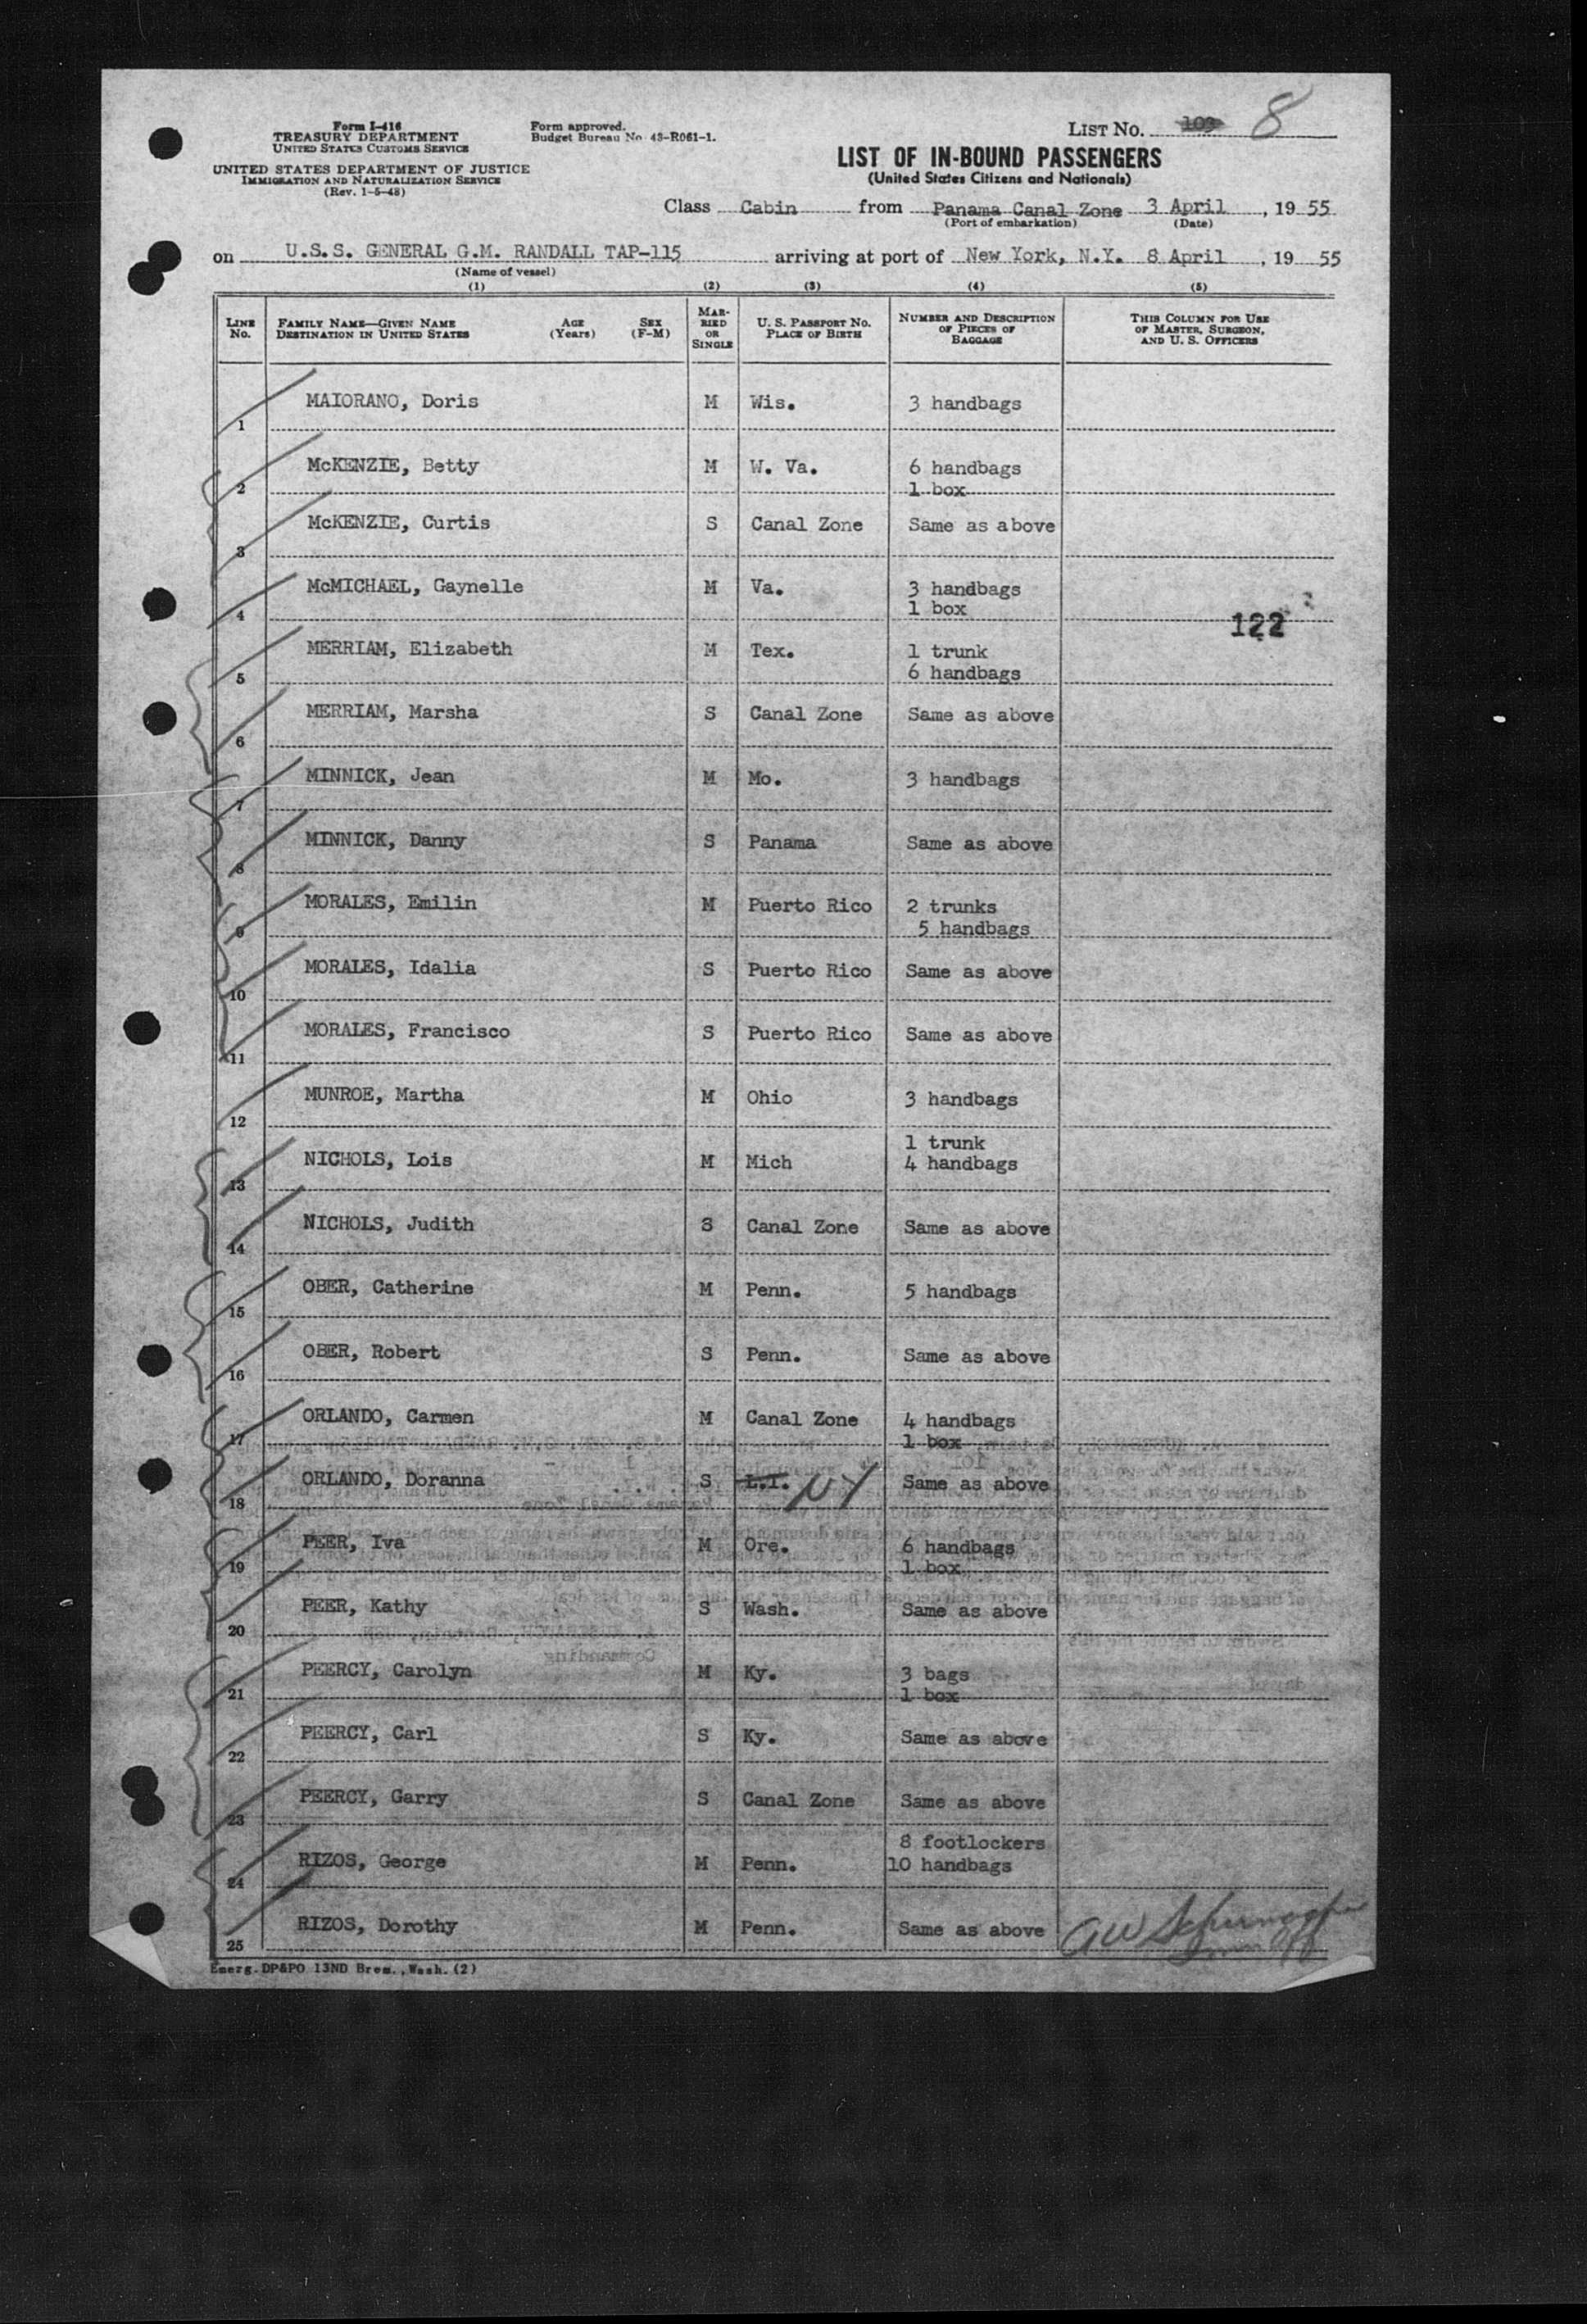 Form I-416
TREASURY DEPARTMENT
UNITED STATES CUSTOMS SERVICE
UNITED STATES DEPARTMENT OF JUSTICE
IMMIGRATION AND NATURALIZATION SERVICE
(Rev. 1-5-48)
Form approved.
Budget Bureau No. 43-R061-1.
LIST NO. 103 8
LIST OF IN-BOUND PASSENGERS
(United States Citizens and Nationals)
Class Cabin from Panama Canal Zone 3 April, 19 55
(Port of embarkation) (Date)
on U.S.S. GENERAL G.M. RANDALL TAP-115 arriving at port of New York, N.Y. 8 April, 19 55
(Name of vessel)
(1) (2) (3) (4) (5)
LINE No. FAMILY NAME—GIVEN NAME DESTINATION IN UNITED STATES AGE (Years) SEX (F-M) MARRIED OR SINGLE U. S. PASSPORT NO. PLACE OF BIRTH NUMBER AND DESCRIPTION OF PIECES OF BAGGAGE THIS COLUMN FOR USE OF MASTER, SURGEON, AND U. S. OFFICERS
1 MAIORANO, Doris M Wis. 3 handbags
2 McKENZIE, Betty M W. Va. 6 handbags
1 box
3 McKENZIE, Curtis S Canal Zone Same as above
4 McMICHAEL, Gaynelle M Va. 3 handbags
1 box
122
5 MERRIAM, Elizabeth M Tex. 1 trunk
6 handbags
6 MERRIAM, Marsha S Canal Zone Same as above
7 MINNICK, Jean M Mo. 3 handbags
8 MINNICK, Danny S Panama Same as above
9 MORALES, Emilin M Puerto Rico 2 trunks
5 handbags
10 MORALES, Idalia S Puerto Rico Same as above
11 MORALES, Francisco S Puerto Rico Same as above
12 MUNROE, Martha M Ohio 3 handbags
1 trunk
13 NICHOLS, Lois M Mich 4 handbags
14 NICHOLS, Judith S Canal Zone Same as above
15 OBER, Catherine M Penn. 5 handbags
16 OBER, Robert S Penn. Same as above
17 ORLANDO, Carmen M Canal Zone 4 handbags
1 box
18 ORLANDO, Doranna S L.I. NY Same as above
19 PEER, Iva M Ore. 6 handbags
1 box
20 PEER, Kathy S Wash. Same as above
21 PEERCY, Carolyn M Ky. 3 bags
1 box
22 PEERCY, Carl S Ky. Same as above
23 PEERCY, Garry S Canal Zone Same as above
8 footlockers
24 RIZOS, George M Penn. 10 handbags
25 RIZOS, Dorothy M Penn. Same as above
Emerg. DP&PO 13ND Brem., Wash. (2)